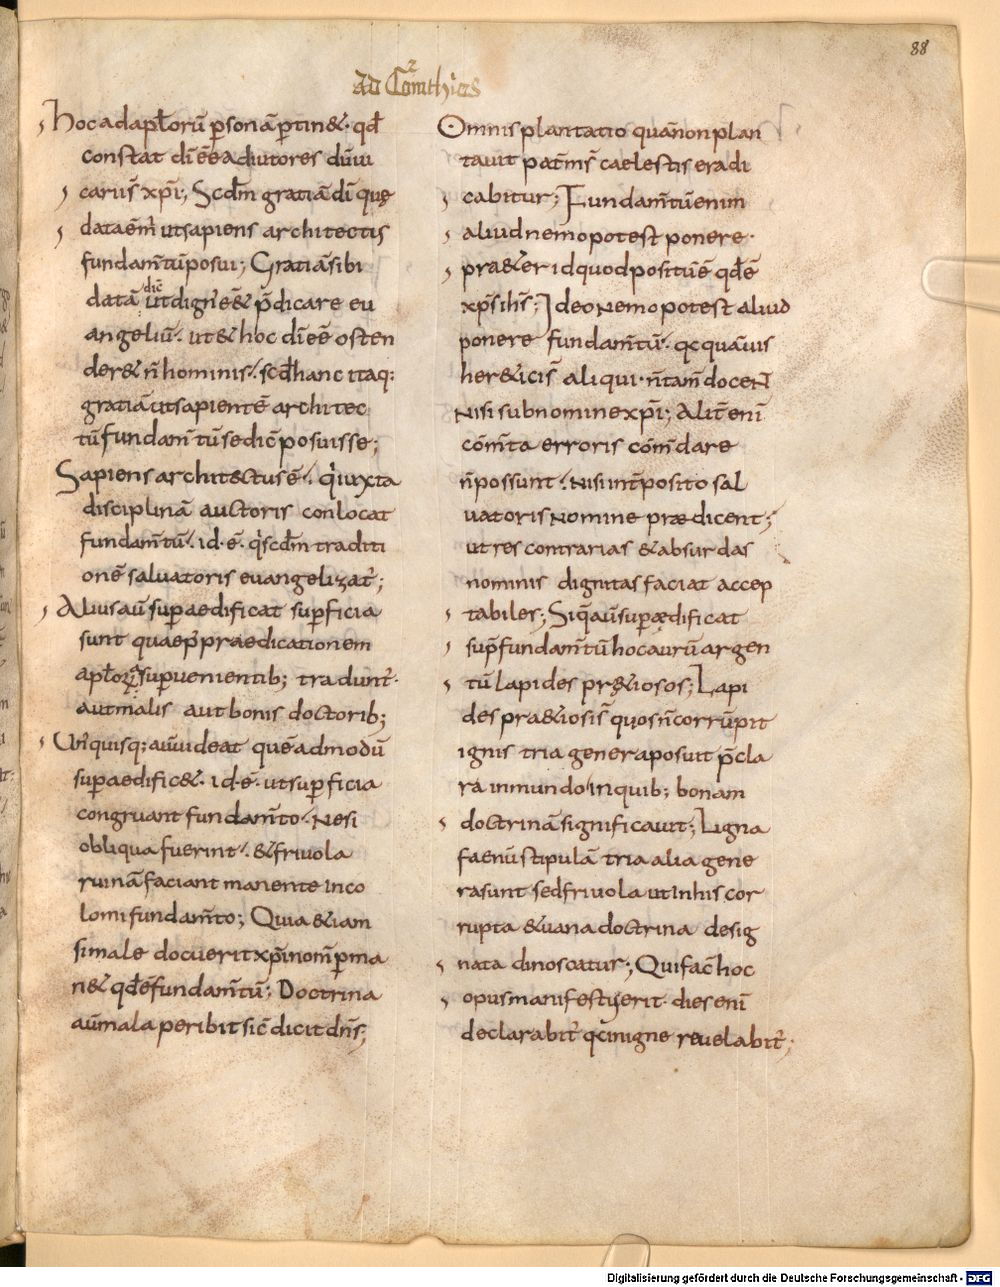 88
Ad Corinthios
2
hoc ad apłorū ꝑsonā ꝑtin&· qđ
constat dī ēē adiutores dū ui
cariis xp̄i; Scd̄m gratiā dī quę
data ē m̄ ut sapiens architectis
fundam̄tū posui; Gratiā sibi
datā dic̄ ut digne e& p̄dicare eu
angeliū· ut & hoc dī ēē osten
der& n̄ hominis· scd̄ hanc itaq:
gratiā ut sapientē architec
tū fundam̄tū se dic̄ posuisse;
Sapiens archit&ctus ē· q̇ iuxta
disciplinā auctoris conlocat
fundam̄tū· id·ē· q̇ scd̄m traditi
onē saluatoris euangelizat̄;
Alius aū suꝑaedificat suꝑficia
sunt quae p̄ praedicationem
apłoꝝ suꝑuenientib; tradunt̄·
aut malis aut bonis doctorib;
Un'quisq; aū uideat quēadmodū
suꝑaedific&· id·ē· ut suꝑficia
congruant fundam̄to· Ne si
obliqua fuerint· & friuola
ruinā faciant manente inco
lomi fundam̄to; Quia & iam
si male docuerit xp̄i nom̄ ꝑma
n& qđ ē fundam̄tū; Doctrina
aū mala peribit sic̄ dicit dn̄s;
Omnis plantatio quā non plan
tauit pat̄ m̄s caelestis eradi
cabitur; Fundam̄tū enim
aliud nemo potest ponere·
pra&er id quod positū ē qđ ē
xp̄s ih̄s; Ideo nemo potest aliud
ponere fundam̄tū· qc quāuis
her&icis aliqui· n̄ tam̄ docent
Nisi sub nomine xp̄i; Alit̄ eni
cōm̄ta erroris cōm̄dare
n̄ possunt· Nisi int̄posito sal
uatoris nomine praedicent;
ut res contrarias & absurdas
nominis dignitas faciat accep
tabiles; Siq̄ aū supaedificat
sup̄ fundam̄tū hoc aurū argen
tū lapides pr&iosos; Lapi
des pra&iosis quos n̄ corrūpit
ignis tria genera posuit p̄cla
ra in mundo in quib; bonam
doctrinā significauit; Ligna
faenū stipulā tria alia gene
ra sunt sed friuola ut in his cor
rupta & uana doctrina desig
nata dinoscatur; Qui fac̄ hoc
opus manifestus erit· dies eni
declarabit̄ qc in igne reuelabit̄;
Digitalisierung gefördert durch die Deutsche Forschungsgemeinschaft - DFG